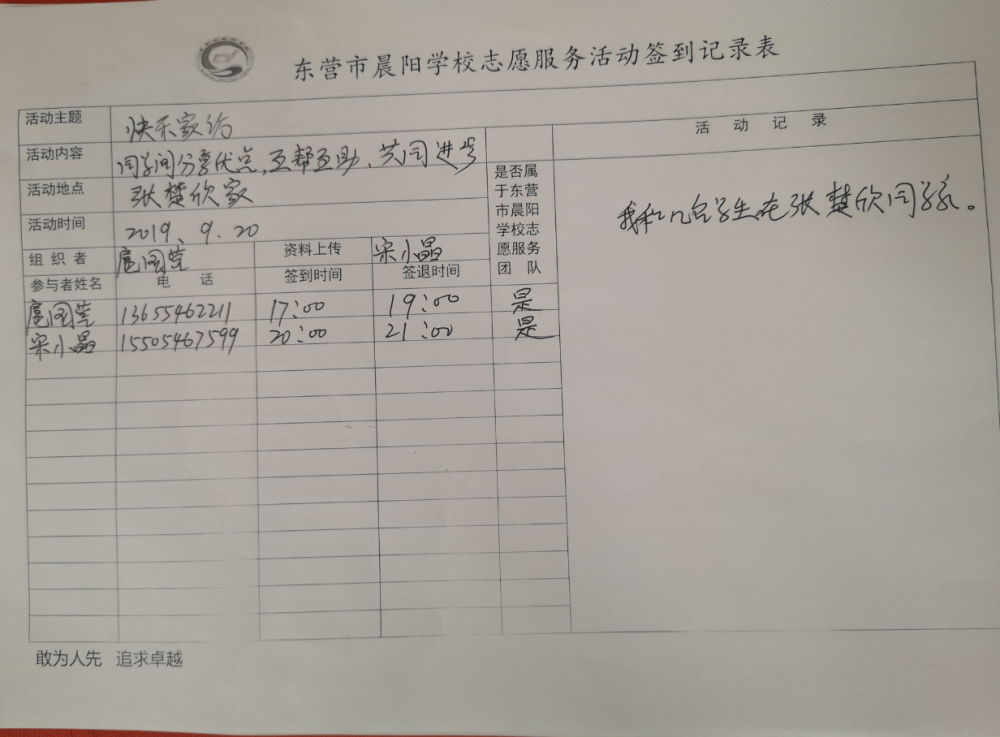 东营市晨阳学校志愿服务活动签到记录表
活动主题 快乐家访
活动内容 同学间分享优点,互帮互助、共同进步
活动地点 张楚欣家
活动时间 2019、9.20
组织者 扈国莹 资料上传 宋小晶
参与者姓名 电话 签到时间 签退时间
是否属
于东营
市晨阳
学校志
愿服务
团队
扈国莹 13655462211 17:00 19:00 是
宋小晶 15505467599 20:00 21:00 是
活动记录
我和几名学生在张楚欣同学家。
敢为人先 追求卓越